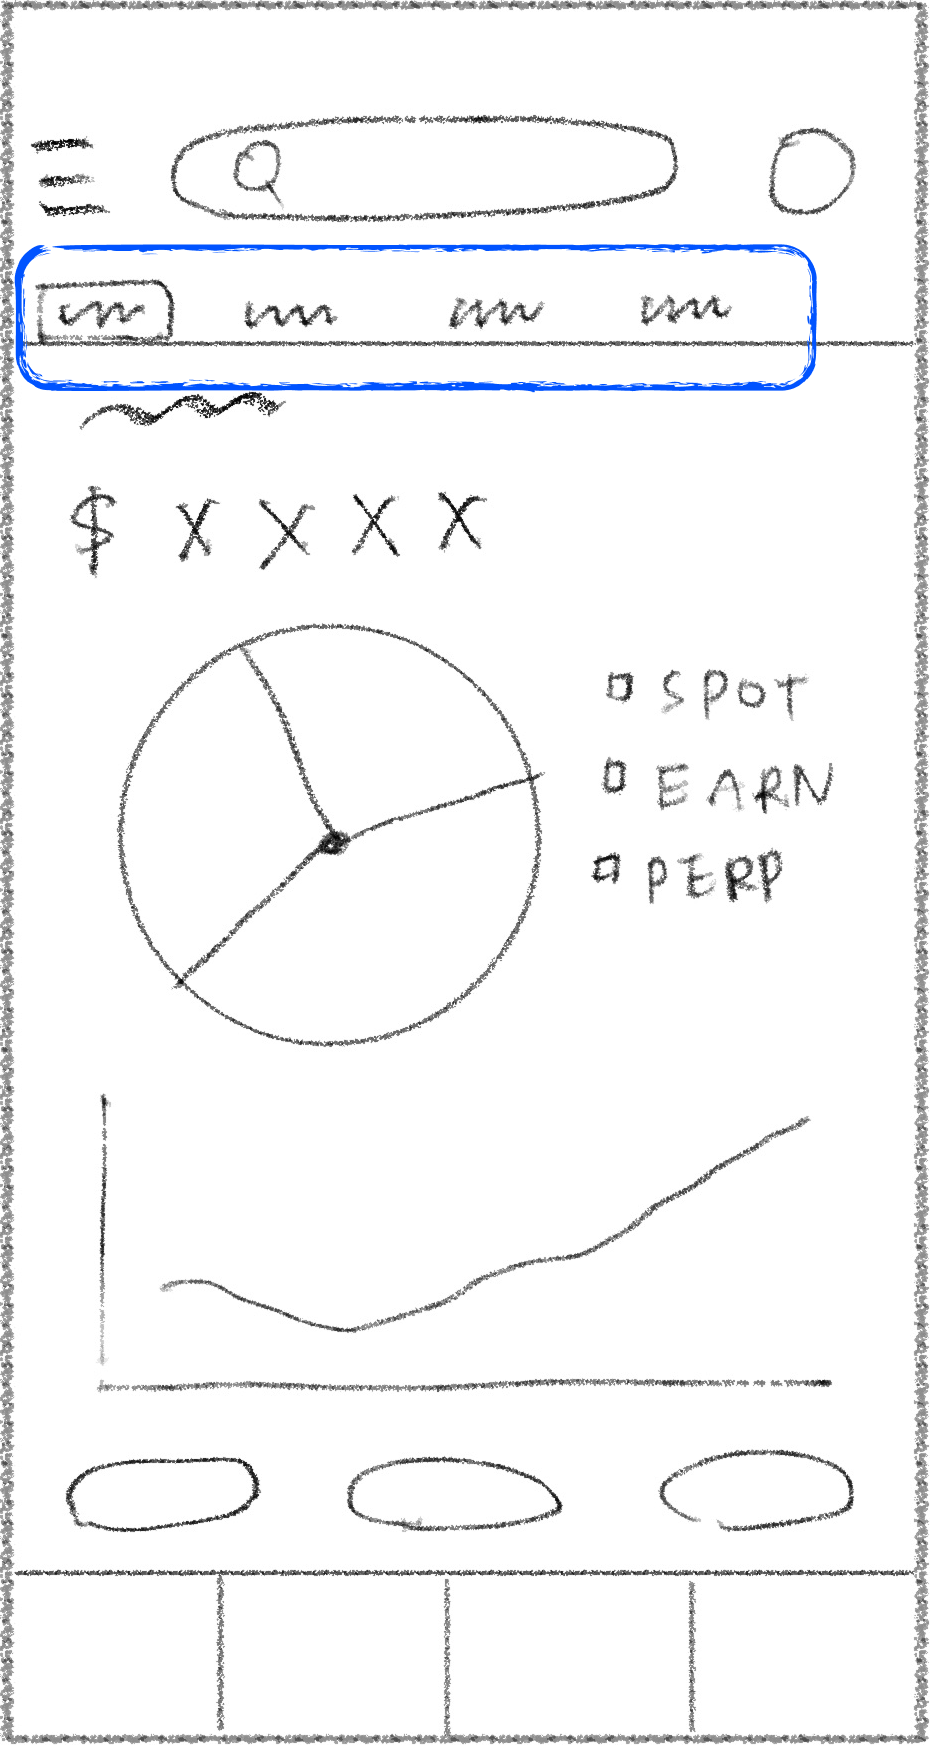 $ X X X X
SPOT
EARN
PERP